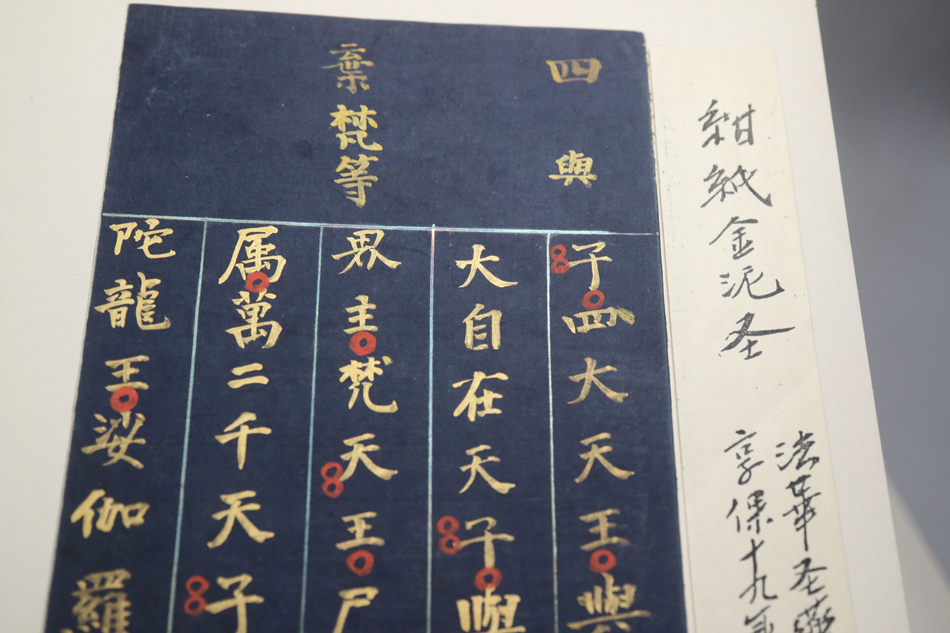 紺紙金泥圣
法華圣
享保十九年
四與
棄梵等
子四大天王與
大自在天子與
界主梵天王尸
属萬二千天子
陀龍王娑伽羅